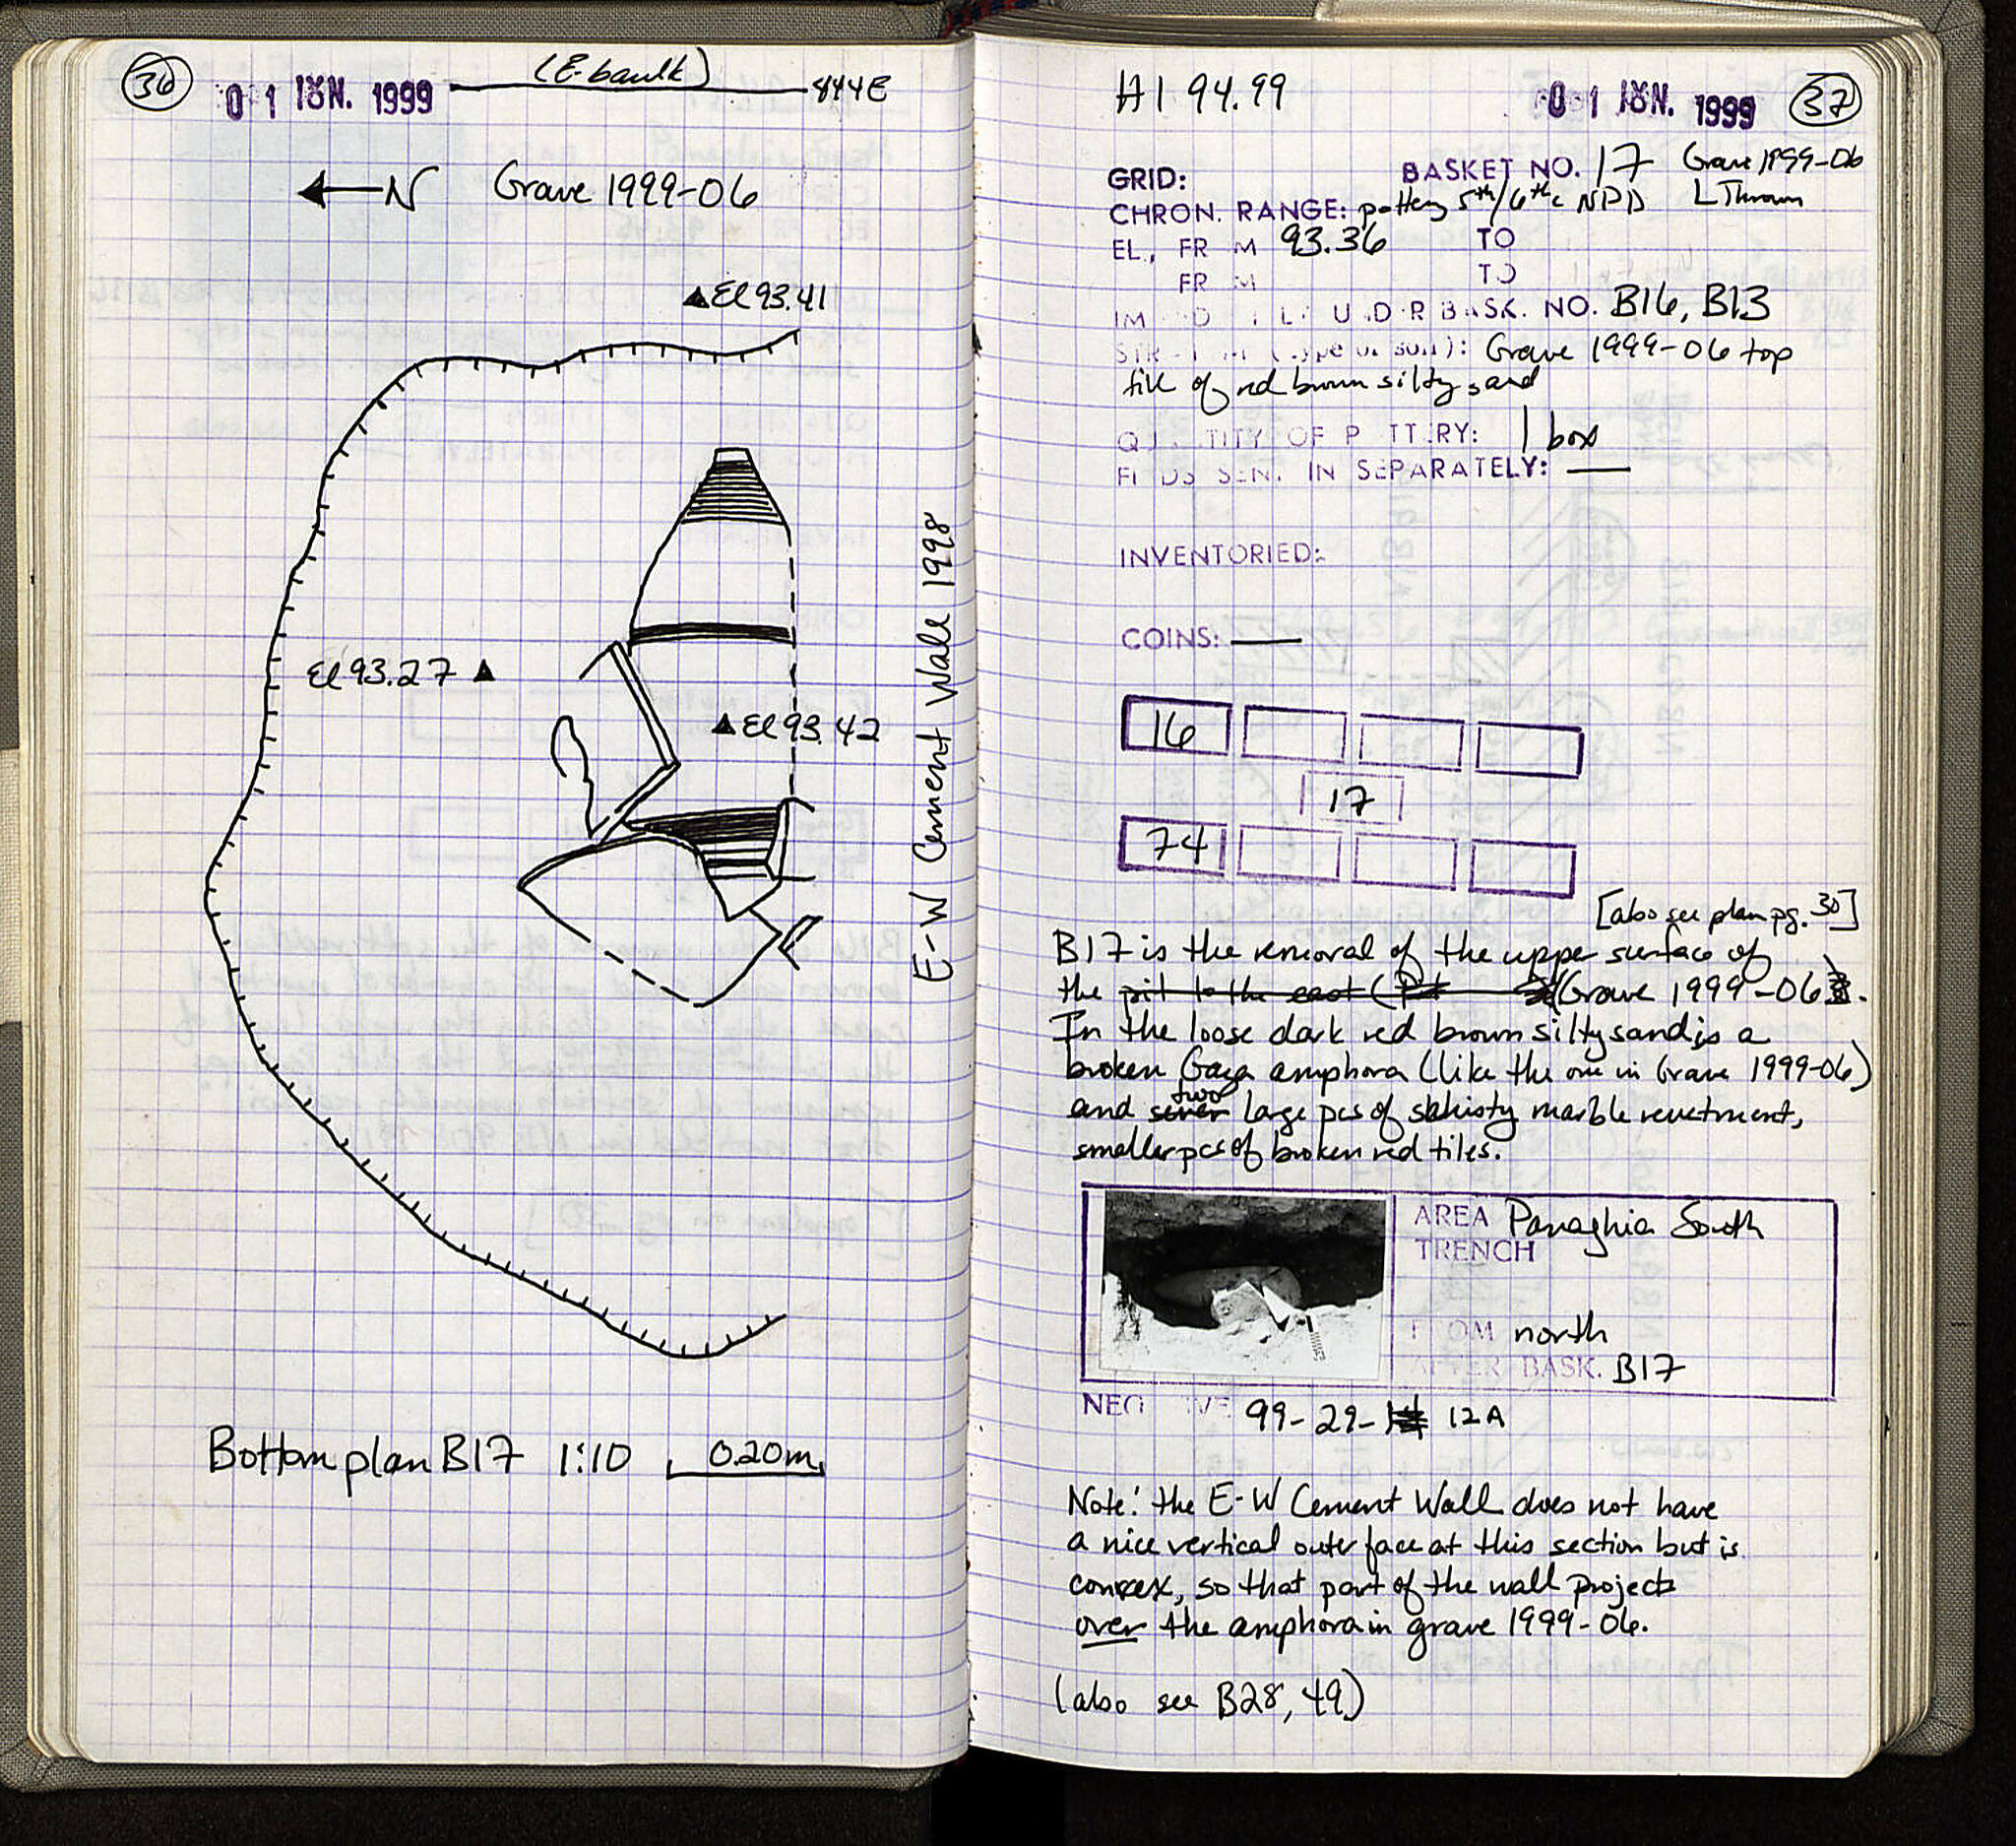 36
01 IÖN. 1999
(E-baulk)
844E
N Grave 1999-06
El 93.41
El 93.27
El 93.42
E-W Cement Wall 1998
Bottom plan B17 1:10 0.20m
94.99
01 IÖN. 1999
37
GRID: BASKET NO. 17 Grave 1999-06
CHRON. RANGE: pottery 5th/6th c NPD
EL., FR M 93.36 TO
FR M TO
NO. B16, B13
Grave 1999-06 top
fill of red brown silty sand
TTRY: 1 box
IN SEPARATELY: —
INVENTORIED:
COINS: —
16
17
74
[also see plan pg. 30]
B17 is the removal of the upper surface of
the pit to the east (Pit Grave 1999-06.
In the loose dark red brown silty sand is a
broken Gaza amphora (like the one in Grave 1999-06)
and two large pcs of schisty marble revetment,
smaller pcs of broken red tiles.
AREA Panaghia South
TRENCH
FROM north
AFTER BASK. B17
99-29- 12A
Note: the E-W Cement Wall does not have
a nice vertical outer face at this section but is
convex, so that part of the wall projects
over the amphora in grave 1999-06.
(also see B28, 49)